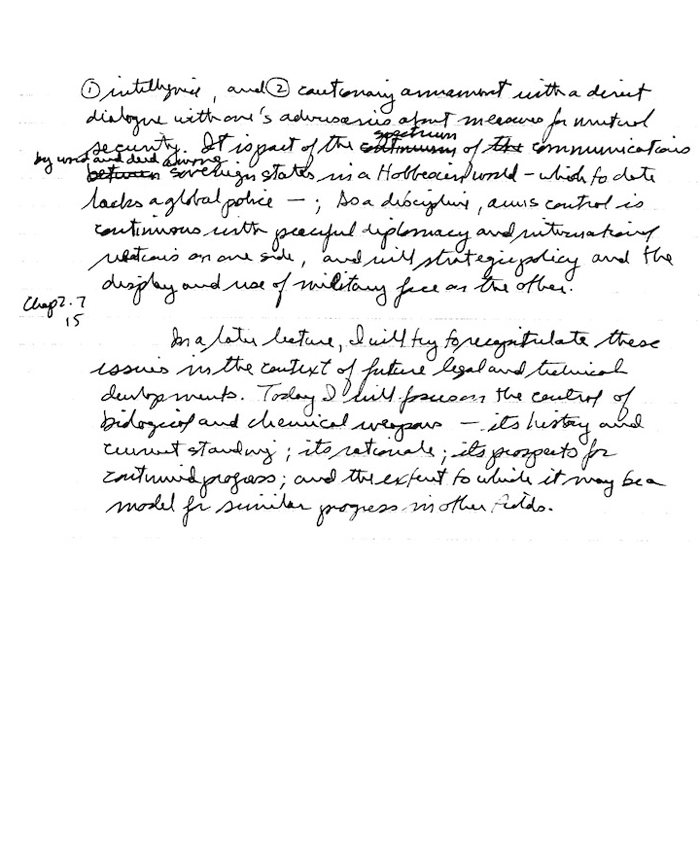 ① intelligence, and ② cautionary armament with a direct
dialogue with one's adversaries about measures for mutual
security. It is part of the spectrum of communications
by word and deed among sovereign states in a Hobbesian world – which to date
lacks a global police – ; As a discipline, arms control is
continuous with peaceful diplomacy and international
relations on one side, and with strategic policy and the
display and use of military force on the other.
Chap 2.7
15
In a later lecture, I will try to recapitulate these
issues in the context of future legal and technical
developments. Today I will focus on the control of
biological and chemical weapons – its history and
current standing; its rationale; its prospects for
continued progress; and the extent to which it may be a
model for similar progress in other fields.